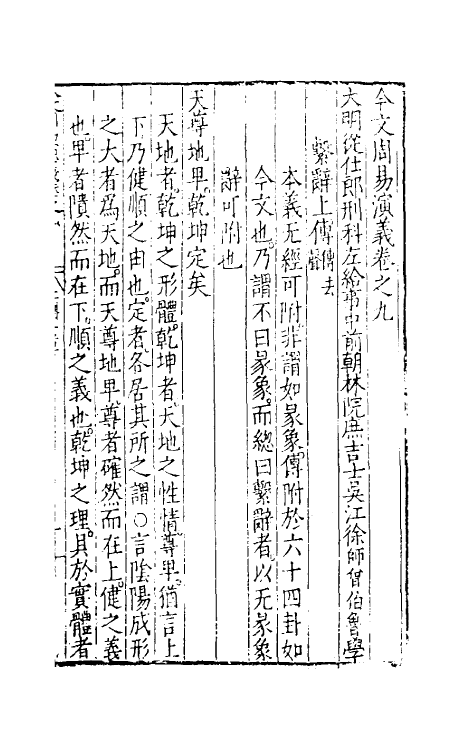 今文周易演義卷之九
大明從仕郎刑科左給事中前翰林院庶吉士吳江徐師曾伯魯學
繫辭上傳傳去聲
本義无經可附非謂如彖象傳附於六十四卦如
今文也乃謂不曰彖象而總曰繫辭者以无彖象
辭可附也
天尊地卑乾坤定矣
天地者乾坤之形體乾坤者天地之性情尊卑猶言上
下乃健順之由也定者各居其所之謂○言陰陽成形
之大者爲天地而天尊地卑尊者確然而在上健之義
也卑者隤然而在下順之義也乾坤之理具於實體者